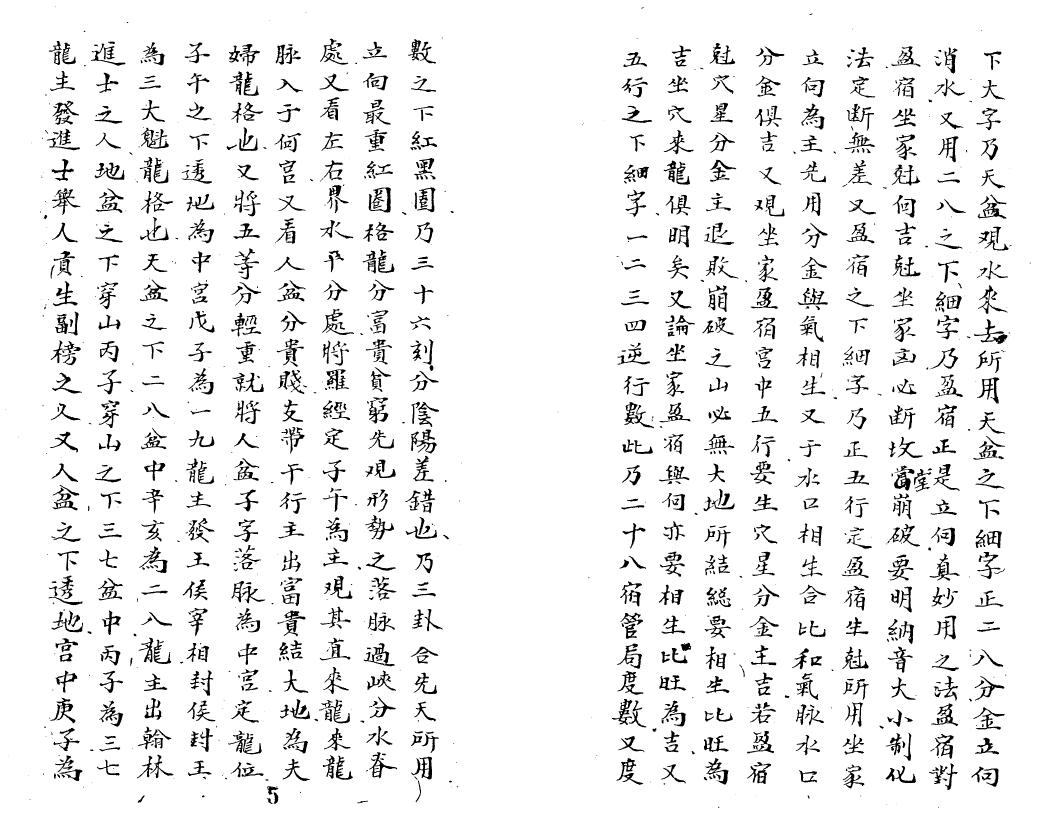 下大字乃天盆观水來去所用天盆之下細字正二八分金立向
消水又用二八之下細字乃盈宿正是立向真妙用之法盈宿對
盈宿坐家尅向吉尅坐家凶必断坟當堂崩破要明納音大小制化
法定断無差又盈宿之下細字乃正五行定盈宿生尅所用坐家
立向為主先用分金與氣相生又于水口相生合比和氣脉水口
分金俱吉又观坐家盈宿宮中五行要生穴星分金主吉若盈宿
尅穴星分金主退敗崩破之山必無大地所結総要相生比旺為
吉坐穴來龍俱明矣又論坐家盈宿與向亦要相生比旺為吉又
五行之下細字一二三四逆行數此乃二十八宿管局度數又度
數之下紅黑圈乃三十六刻分陰陽差錯也乃三卦合先天所用
立向最重紅圈格龍分富貴貧窮先观形勢之落脉過峽分水脊
處又看左右界水平分處將羅經定子午為主观其直來龍來龍
脉入于何宮又看人盆分貴賤支帶干行主出富貴結大地為夫
婦龍格也又將五等分輕重就將人盆子字落脉為中宮定龍位
子午之下透地為中宮戊子為一九龍主發王侯宰相封侯封王
為三大魁龍格也天盆之下二八盆中辛亥為二八龍主出翰林
進士之人地盆之下穿山丙子穿山之下三七盆中丙子為三七
龍主發進士舉人貢生副榜之人又人盆之下透地宮中庚子為
5